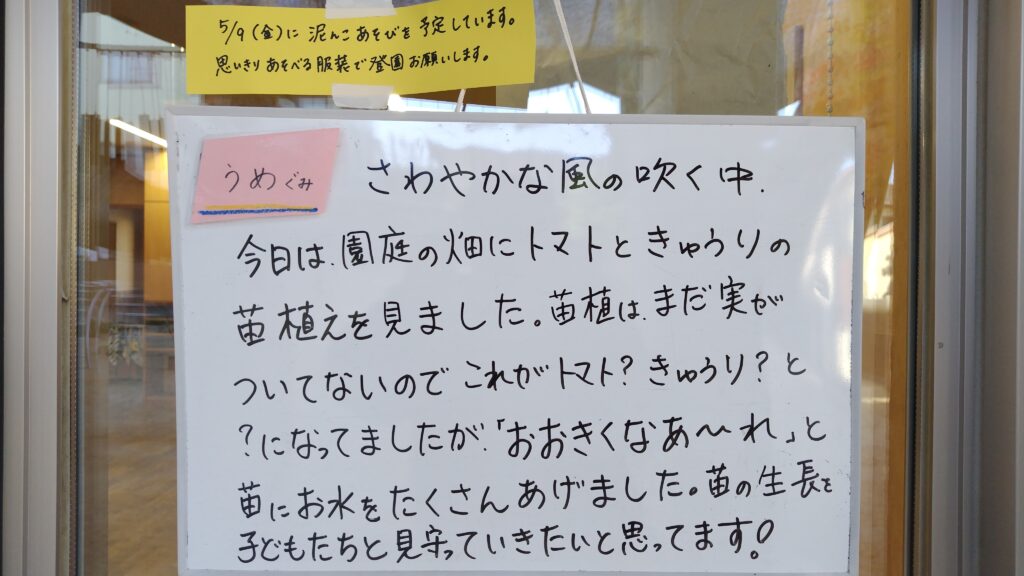 5/9(金)に 泥んこあそびを予定しています。
思いきりあそべる服装で登園お願いします。
うめぐみ
さわやかな風の吹く中、
今日は、園庭の畑にトマトときゅうりの
苗植えを見ました。苗植は、まだ実が
ついてないのでこれがトマト?きゅうり?と
?になってましたが、「おおきくなあ〜れ」と
苗にお水をたくさんあげました。苗の生長を
子どもたちと見守っていきたいと思ってます!